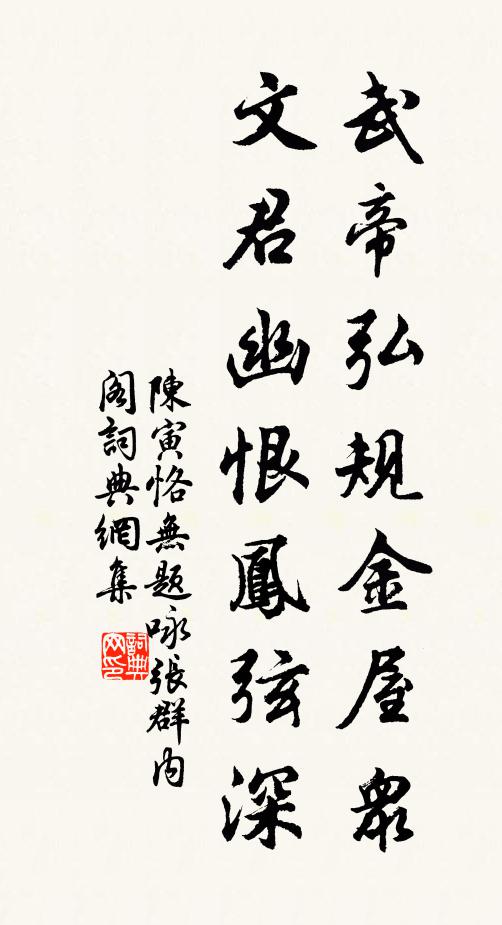 武帝弘規金屋衆
文君幽恨鳳弦深
陳寅恪無題咏張群内
閣詞典網集
詞典網印